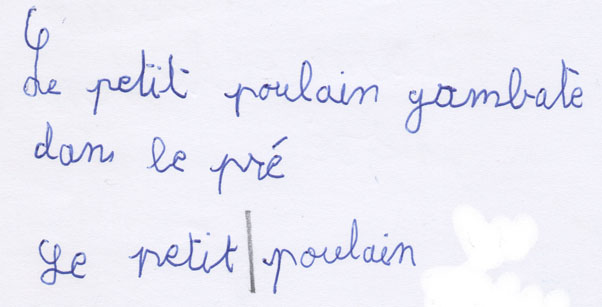 Le petit poulain gambate
dans le pré
Le petit poulain